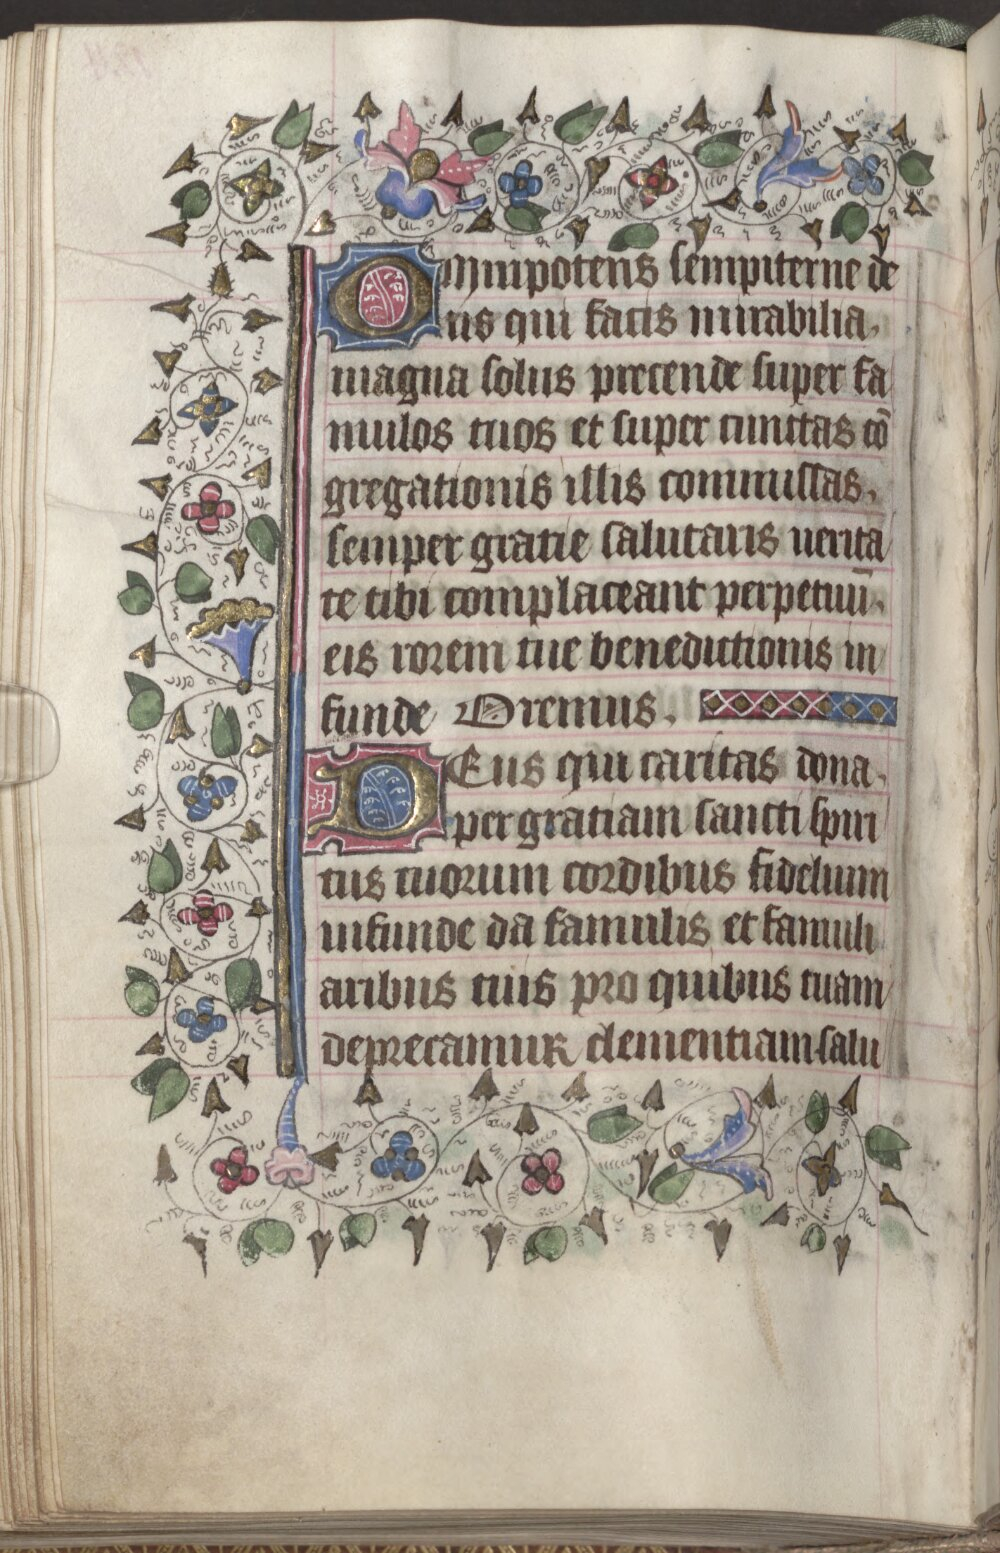 Omnipotens sempiterne de
us qui facis mirabilia.
magna solus pretende super fa
mulos tuos et super cunctas cō
gregationis illis commissas.
semper gratie salutaris uerita
te tibi complaceant perpetuū.
eis rorem tue benedictionis in
funde Oremus.
DEus qui caritas dona.
per gratiam sancti spiri
tus tuorum cordibus fidelium
infunde da famulis et famuli
aribus tuis pro quibus tuam
deprecamur clementiam salu